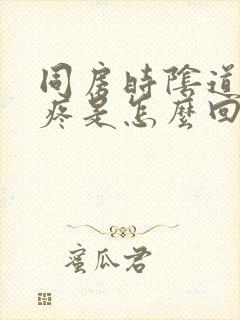 同房時陰道
疼是怎麼回
蜜瓜君